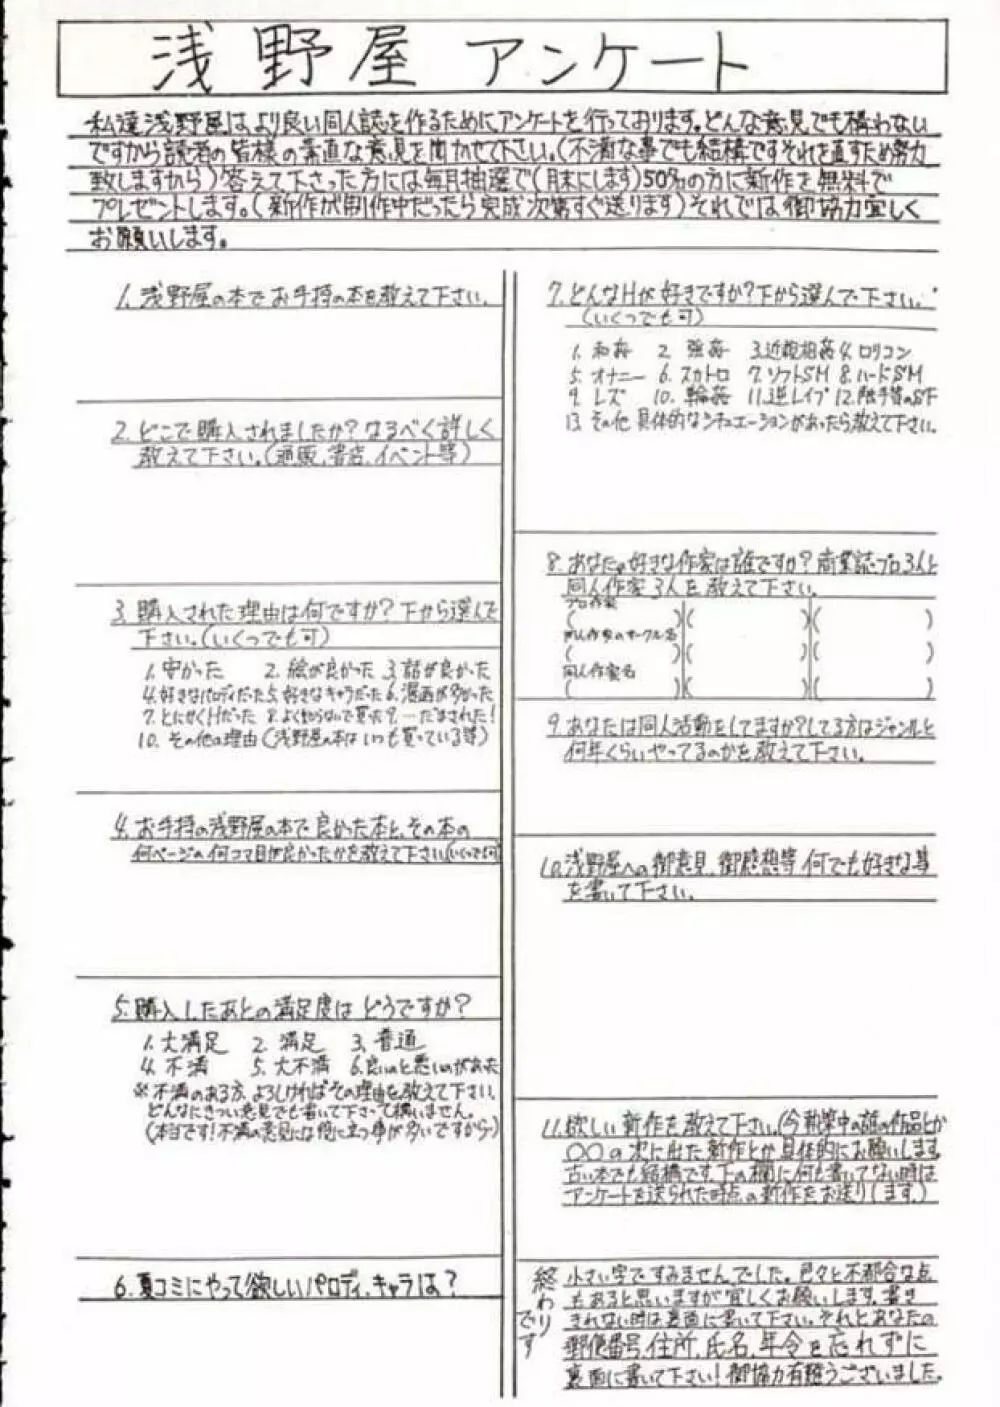 浅野屋 アンケート
私達浅野屋は、より良い同人誌を作るためにアンケートを行っております。どんな意見でも構わない
ですから読者の皆様の素直な意見を聞かせて下さい。(不満な事でも結構ですそれを直すため努力
致しますから)答えて下さった方には毎月抽選で(月末にします)50名の方に新作を無料で
プレゼントします。(新作が制作中だったら完成次第すぐ送ります)それでは御協力宜しく
お願いします。
1. 浅野屋の本でお手持の本を教えて下さい。
2. どこで購入されましたか?なるべく詳しく
教えて下さい。(通販、書店、イベント等)
3. 購入された理由は何ですか?下から選んで
下さい。(いくつでも可)
1. 安かった 2. 絵が良かった 3. 話が良かった
4. 好きなパロディだった 5. 好きなキャラだった 6. 漫画が多かった
7. とにかくHだった 8. よく知らないで買った 9. 一だまされた!
10. その他の理由(浅野屋の本はいつも買っている等)
4. お手持の浅野屋の本で良かった本と、その本の
何ページの何コマ目が良かったかを教えて下さい(いくつでも可)
5. 購入したあとの満足度はどうですか?
1. 大満足 2. 満足 3. 普通
4. 不満 5. 大不満 6. 良いのと悪いのがあった
※不満のある方、よろしければその理由を教えて下さい。
どんなにきつい意見でも書いて下さって構いません。
(本当です!不満の意見には役に立つ事が多いですから)
6. 夏コミにやって欲しいパロディ、キャラは?
7. どんなHが好きですか?下から選んで下さい。
(いくつでも可)
1. 和姦 2. 強姦 3. 近親相姦 4. ロリコン
5. オナニー 6. スカトロ 7. ソフトSM 8. ハードSM
9. レズ 10. 輪姦 11. 逆レイプ 12. 触手等のSF
13. その他 具体的なシチュエーションがあったら教えて下さい。
8. あなたの好きな作家は誰ですか?商業誌・プロ3人と
同人作家3人を教えて下さい。
プロ作家
( )( )( )
同人作家のサークル名
( )( )( )
同人作家名
( )( )( )
9. あなたは同人活動をしてますか?してる方はジャンルと
何年くらいやってるのかを教えて下さい。
10. 浅野屋への御意見、御感想等何でも好きな事
を書いて下さい。
11. 欲しい新作を教えて下さい。(今執筆中の誰の作品とか
〇〇の次に出た新作とか具体的にお願いします。
古い本でも結構です。下の欄に何も書いてない時は
アンケートを送られた時点の新作をお送りします。)
終わりです
小さい字ですみませんでした。色々と不都合な点
もあると思いますが宜しくお願いします。書き
きれない時は裏面に書いて下さい。それとあなたの
郵便番号、住所、氏名、年令を忘れずに
裏面に書いて下さい!御協力有難うございました。